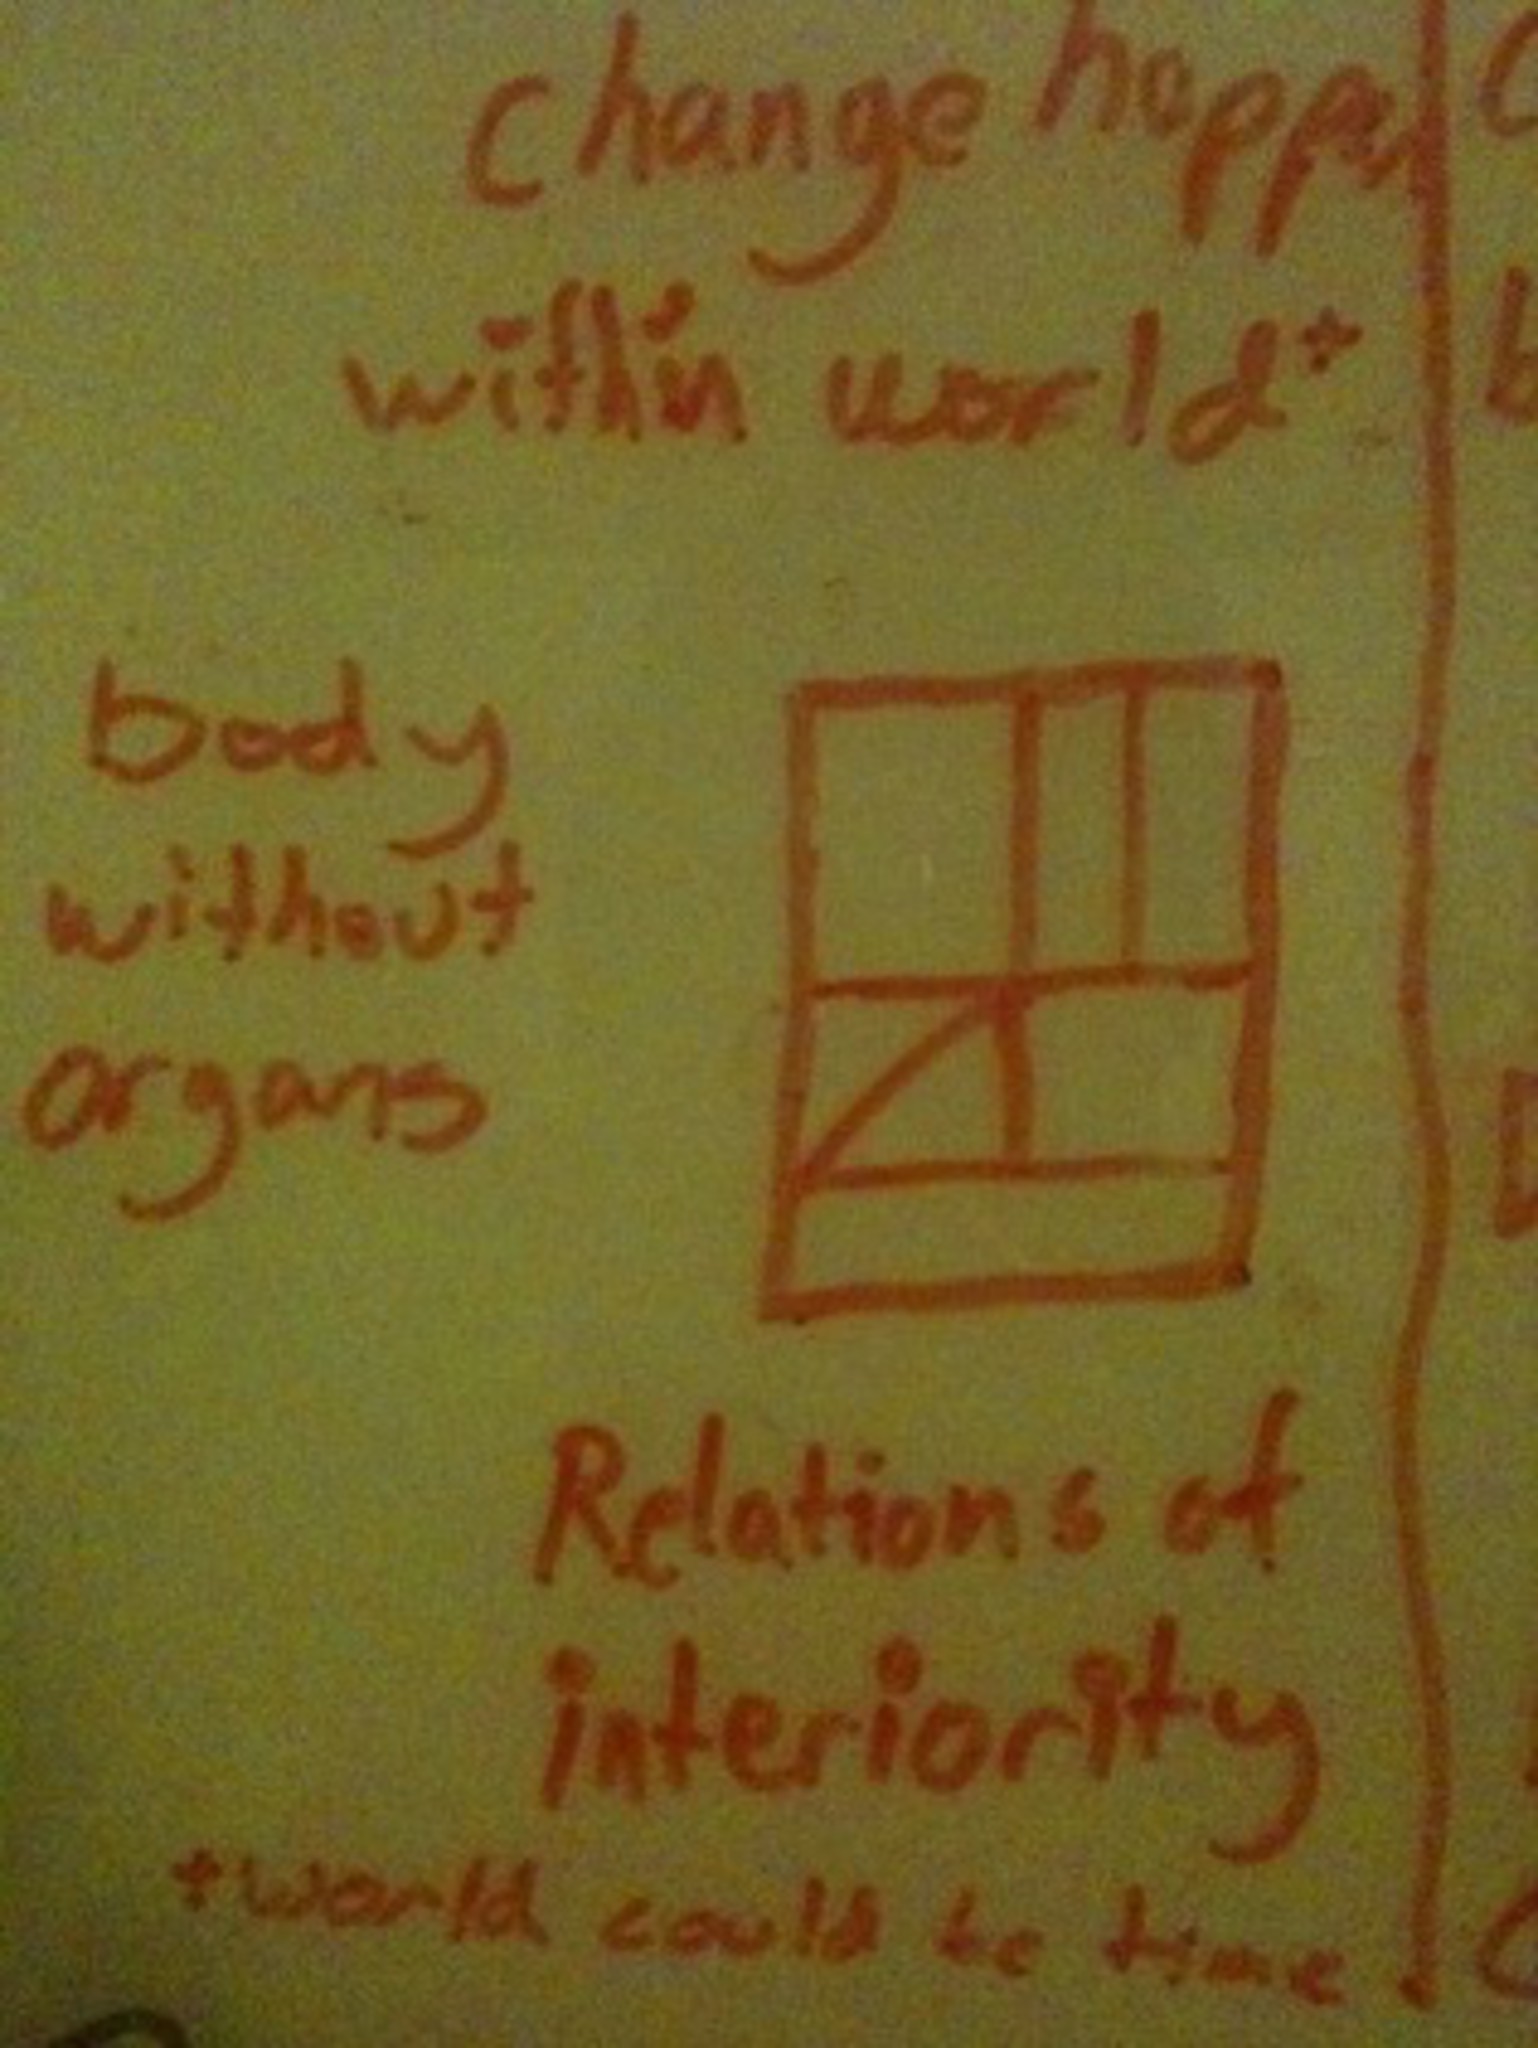 change happe
within world*
body
without
organs
Relations of
interiority
*world could be time